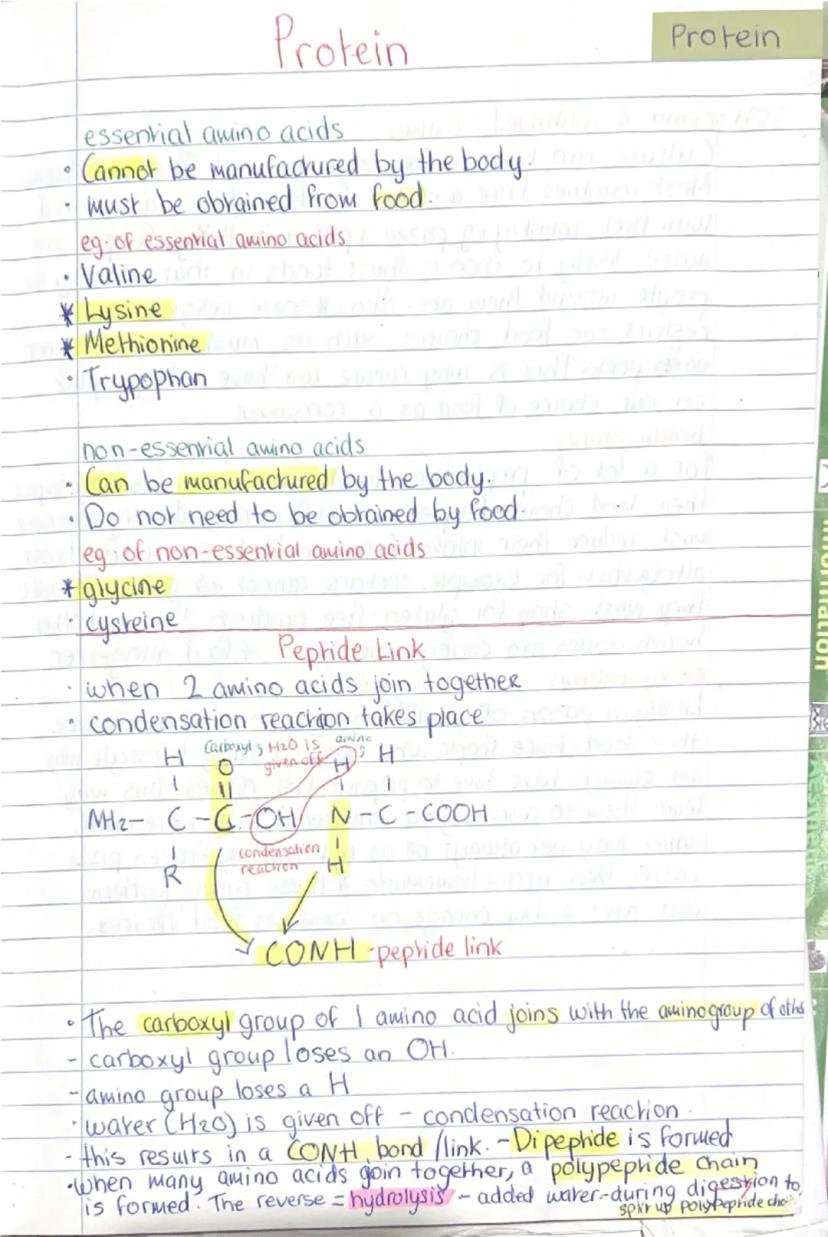 Protein
Protein
essential amino acids
• Cannot be manufactured by the body.
• must be obtained from food.
eg. of essential amino acids
• Valine
* Lysine
* Methionine
• Trypophan
non-essential amino acids
• Can be manufactured by the body.
• Do not need to be obtained by food.
eg of non-essential amino acids
* glycine
• cysteine
Peptide Link
• when 2 amino acids join together
• condensation reaction takes place
H Carboxyl O H2O is given off amino H H
NH2 - C - C - OH N - C - COOH
condensation
reaction
R H
CONH - peptide link
• The carboxyl group of 1 amino acid joins with the amino group of
- carboxyl group loses an OH.
- amino group loses a H
• water (H2O) is given off - condensation reaction.
- this results in a CONH bond /link. - Dipephide is formed
• when many amino acids join together, a polypeptide chain
is formed. The reverse = hydrolysis - added water - during digestion to
split up polypeptide
information